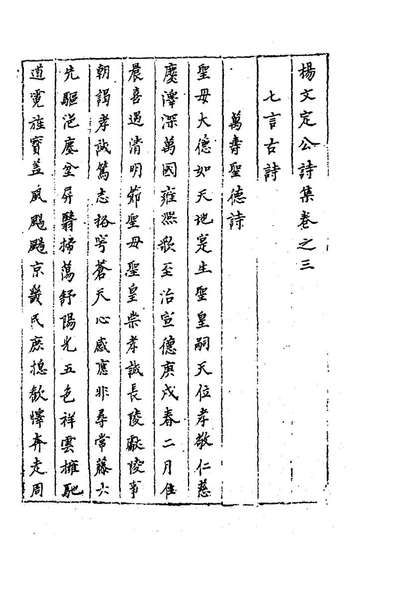 楊文定公詩集卷之三
七言古詩
萬壽聖德詩
聖母大德如天地寔生聖皇嗣天位孝敬仁慈
慶澤深萬國雍熙歌至治宣德庚戌春二月佳
晨喜遇清明節聖母聖皇崇孝誠長陵獻陵事
朝謁孝誠篤志格穹蒼天心感應非尋常藤六
先驅浥塵坌屏翳掃蕩舒陽光五色祥雲擁馳
道霓旌寶蓋風颺颺京畿民庶摠歡懌奔走周